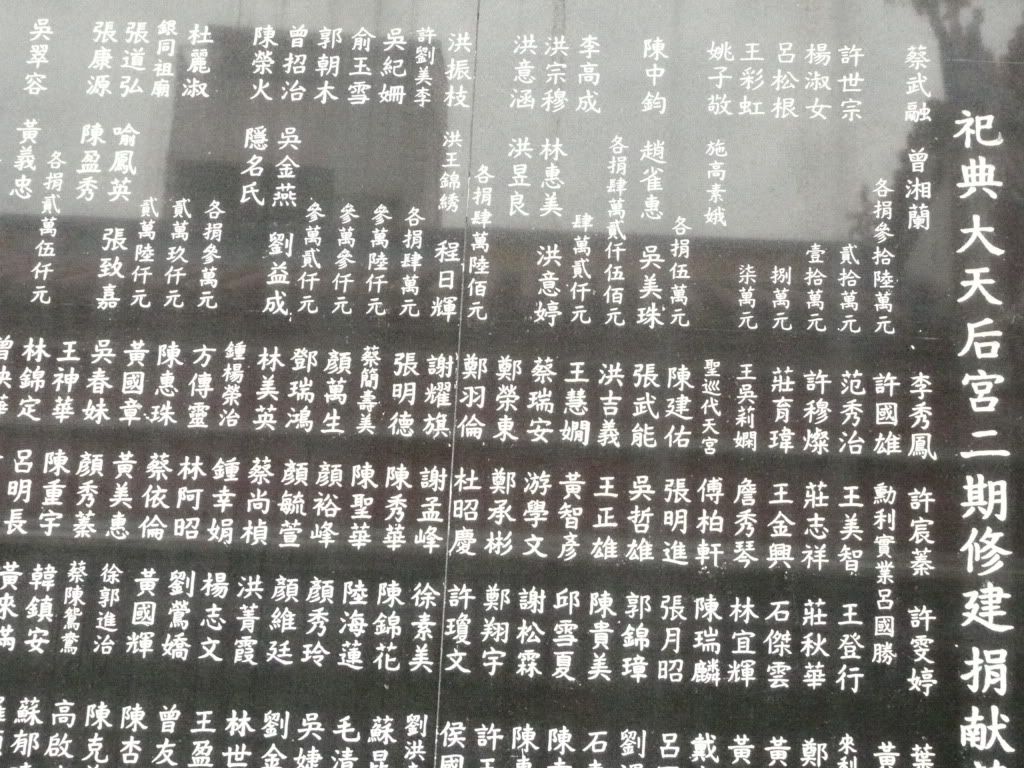 祀典大天后宮二期修建捐献
蔡武融 曾湘蘭 李秀鳳 許宸蓁 許雯婷 葉
各捐參拾陸萬元 許國雄 勲利實業呂國勝 黃
許世宗 貳拾萬元 范秀治 王美智 王登行 來利
楊淑女 壹拾萬元 許穆燦 莊志祥 莊秋華 鄭
呂松根 捌萬元 莊育瑋 王金興 石傑雲 黃
王彩虹 柒萬元 王吳莉嫻 詹秀琴 林宜輝 黃
姚子敬 施高素娥 聖巡代天宮 傅柏軒 陳瑞麟 戴
各捐伍萬元 陳建佑 張明進 張月昭 呂
陳中鈞 趙雀惠 吳美珠 張武能 吳哲雄 郭錦璋 劉
各捐肆萬貳仟伍佰元 洪吉義 王正雄 陳貴美 石
李高成 肆萬貳仟元 王慧嫺 黃智彥 邱雪夏 陳
洪宗穆 林惠美 洪意婷 蔡瑞安 游學文 謝松霖 陳
洪意涵 洪昱良 鄭榮東 鄭承彬 鄭翔宇 許
各捐肆萬陸佰元 鄭羽倫 杜昭慶 許瓊文 侯國
洪振枝 洪王錦綉 程日輝 謝耀旗 謝孟峰 徐素美 劉洪
許劉美李 各捐肆萬元 張明德 陳秀華 陳錦花 蘇
吳紀姍 參萬陸仟元 蔡簡壽美 陳聖華 陸海蓮 毛清
俞玉雪 參萬參仟元 顏萬生 顏裕峰 顏秀玲 吳婕
郭朝木 參萬貳仟元 鄧瑞鴻 顏毓萱 顏維廷 劉金
曾招治 吳金燕 劉益成 林美英 蔡尚楨 洪菁霞 林世
陳榮火 隱名氏 各捐參萬元 鍾楊榮治 鍾幸娟 楊志文 王盈
杜麗淑 貳萬玖仟元 方傳靈 林阿昭 劉鶯嬌 曾友
銀同祖廟 貳萬陸仟元 陳惠珠 蔡依倫 黃國輝 陳杏
張道弘 喻鳳英 張致嘉 黃國章 黃美惠 徐郭進治 陳克
張康源 陳盈秀 吳春妹 顏秀蓁 蔡陳鴛鴦 高啟
各捐貳萬伍仟元 王神華 陳重宇 韓鎮安 蘇郁
吳翠容 黃義忠 林錦定 呂明長 黃來滿